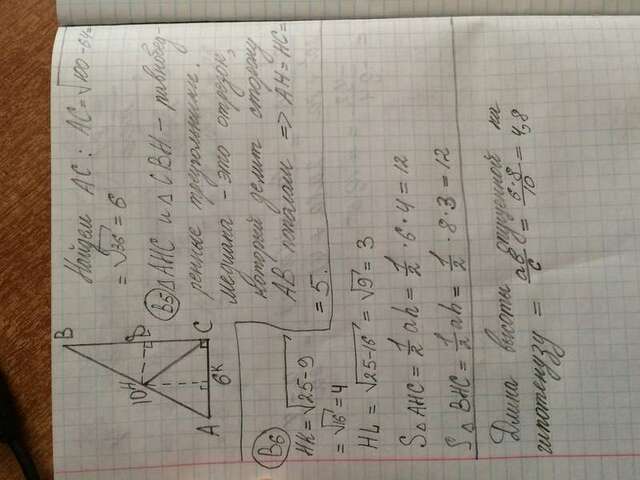 Найдем AC: AC = √100-64 =
= √36 = 6
B5 △AHC и △CBH - равнобед-
ренные треугольники.
Медиана - это отрезок,
который делит сторону
AB пополам => AH = HC =
= 5.
B
10
H
C
A
6
K
B6
HK = √25-9 =
= √16 = 4
HL = √25-16 = √9 = 3
S△AHC = 1/2 ah = 1/2 · 6 · 4 = 12
S△BHC = 1/2 ah = 1/2 · 8 · 3 = 12
Длина высоты опущенной на
гипотенузу = ab/c = 6·8/10 = 4,8